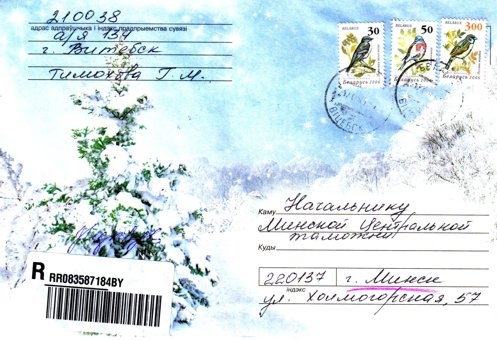 210038
адрас адпраўшчыка і індэкс прадпрыемства сувязі
а/я 135
г. Витебск
Тимохова Г. М.
BELARUS
30
Беларусь 2006
BELARUS
50
Беларусь 2006
BELARUS
300
Беларусь 2006
ВІЦЕБСК
Каму Начальнику
Минской Центральной
таможни
Куды
220137 г. Минск
індэкс
ул. Холмогорская, 57
R RR083587184BY